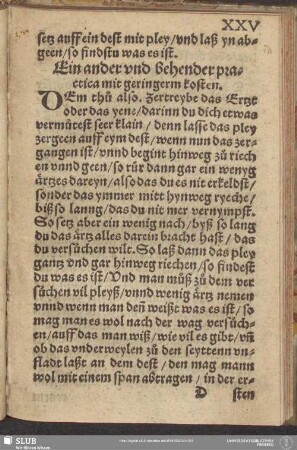 XXV
setz auff ein dest mit pley/ vnd laß yn ab-
geen/ so findstu was es ist.
Ein ander vnd behender pra-
ctica mit geringerm kosten.
DEm thů also. Zertreybe das Ertzt
oder das yene/ darinn du dich etwas
vermůtest seer klain/ denn lasse das pley
zergeen auff eym dest/ wenn nun das zer-
gangen ist/ vnnd begint hinweg zů riech
en vnnd geen/ so rür dann gar ein wenyg
ärtzes dareyn/ also das du es nit erkeldst/
sonder das ymmer mitt hynweg ryeche/
biß so lanng/ das du nit mer vernympst.
So setz aber ein wenig nach/ byß so lang
du das ärtz alles darein bracht hast/ das
du versůchen wilt. So laß dann das pley
gantz vnd gar hinweg riechen/ so findest
du was es ist/ Vnd man můß zů dem ver
sůchen vil pleyß/ vnnd wenig ärtz nemen
vnnd wenn man deñ weißt was es ist/ so
mag man es wol nach der wag versůch-
en/ auff das man wiß/ wie vil es gibt/ vñ
ob das vnderweylen zů den seyttenn vn-
fladt laßt an dem dest/ den mag mann
wol mit einem span abtragen/ in der er-
D sten
SLUB
Wir führen Wissen.
UNIVERSITÄTSBIBLIOTHEK
FREIBERG